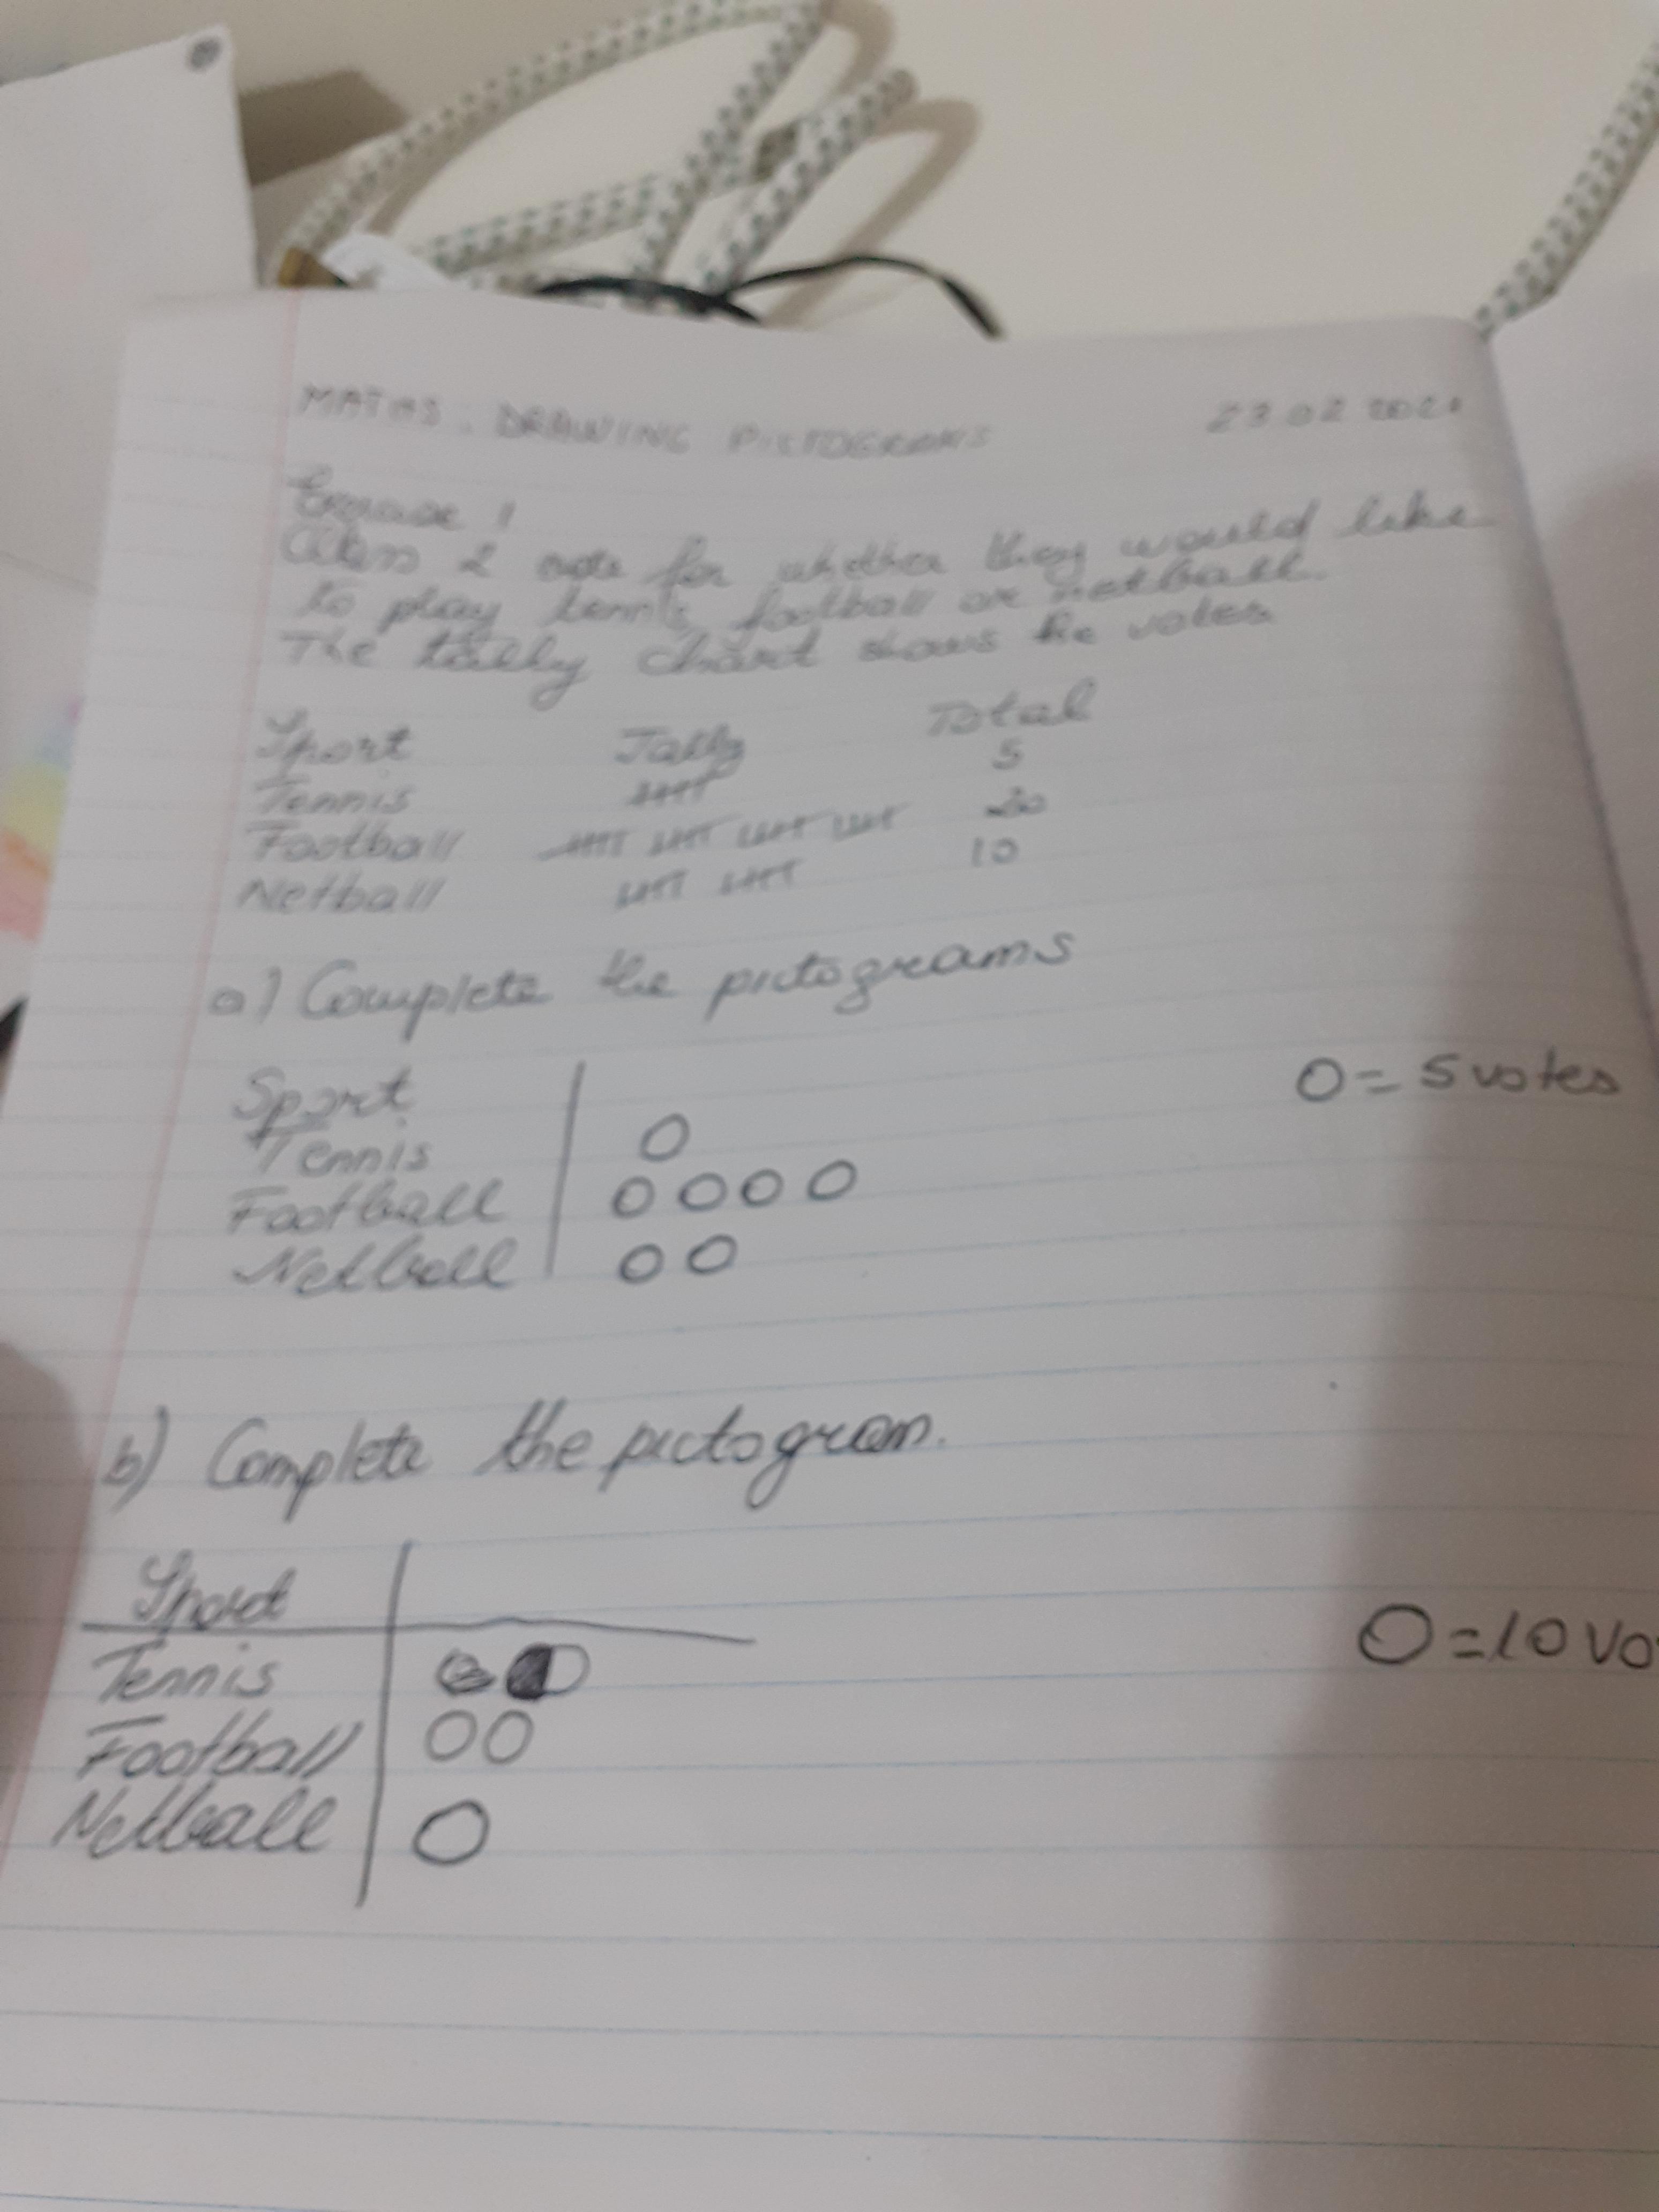 MATHS: DRAWING PICTOGRAMS 23 02 2021
Exercise 1
Class 2 vote for whether they would like
to play tennis, football or netball.
The tally chart shows the votes
Sport Tally Total
Tennis 5
Football 20
Netball 10
a) Complete the pictograms
O = 5 votes
Sport
Tennis O
Football O O O O
Netball O O
b) Complete the pictogram.
Sport
O = 10 vo
Tennis
Football O O
Netball O